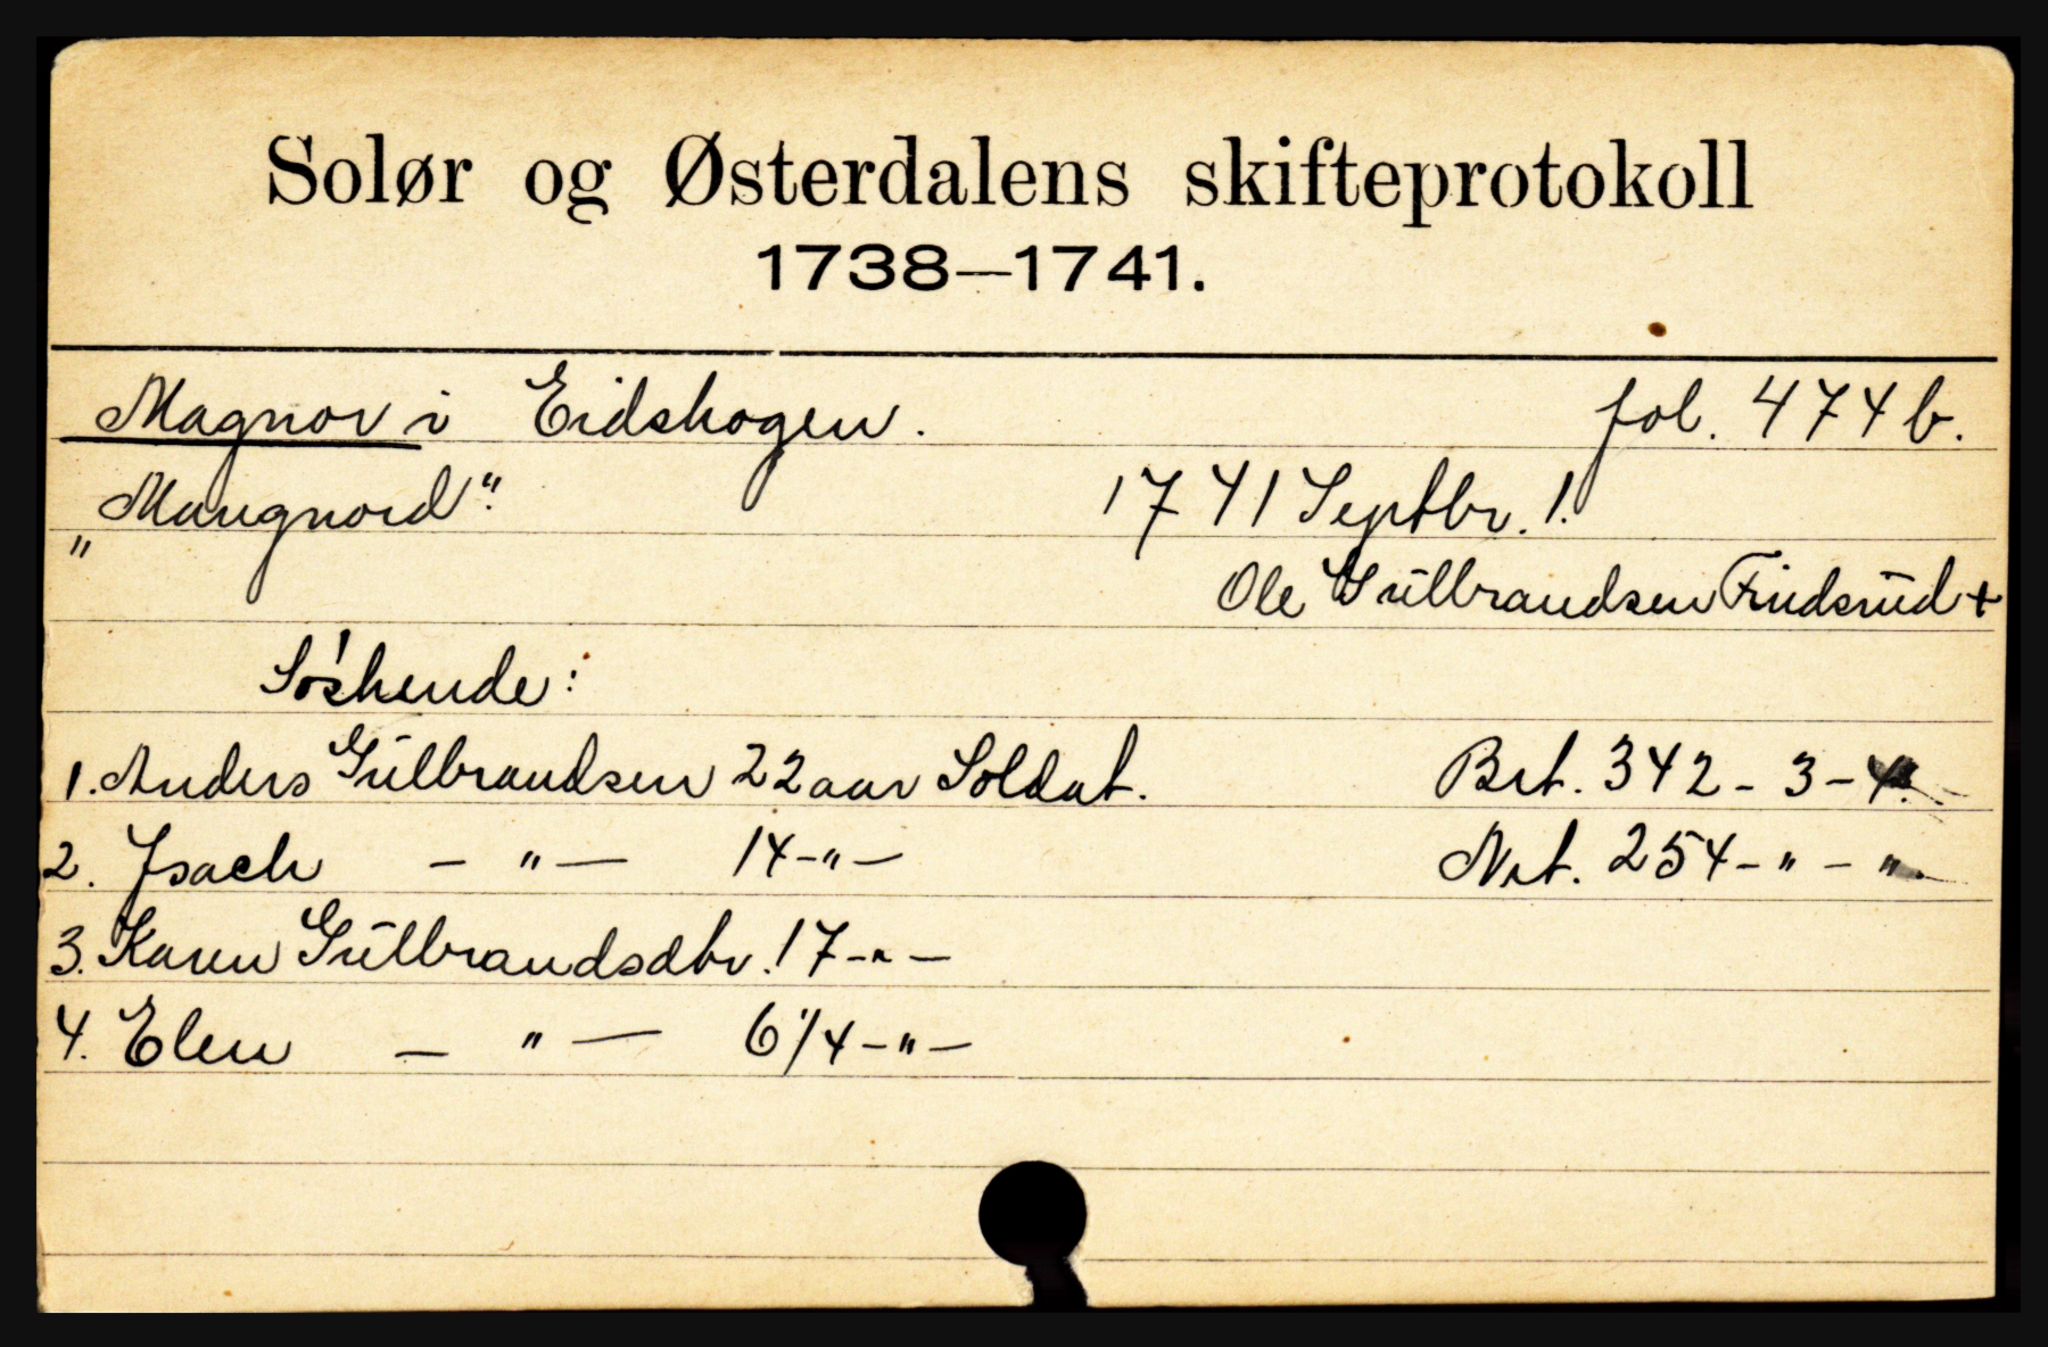 Solør og Østerdalens skifteprotokoll
1738—1741.
Magnor i Eidskogen. fol. 474 b.
„Mangnord". 1741 Septbr. 1.
Ole Gulbrandsen Findsrud +
Søskende:
1. Anders Gulbrandsen 22 aar Soldat. Brt. 342 - 3 - 4.
2. Isach — " — 14 - " — Net. 254 - " - "
3. Karen Gulbrandsdtr. 17 - " —
4. Elen — " — 6 1/4 - " —